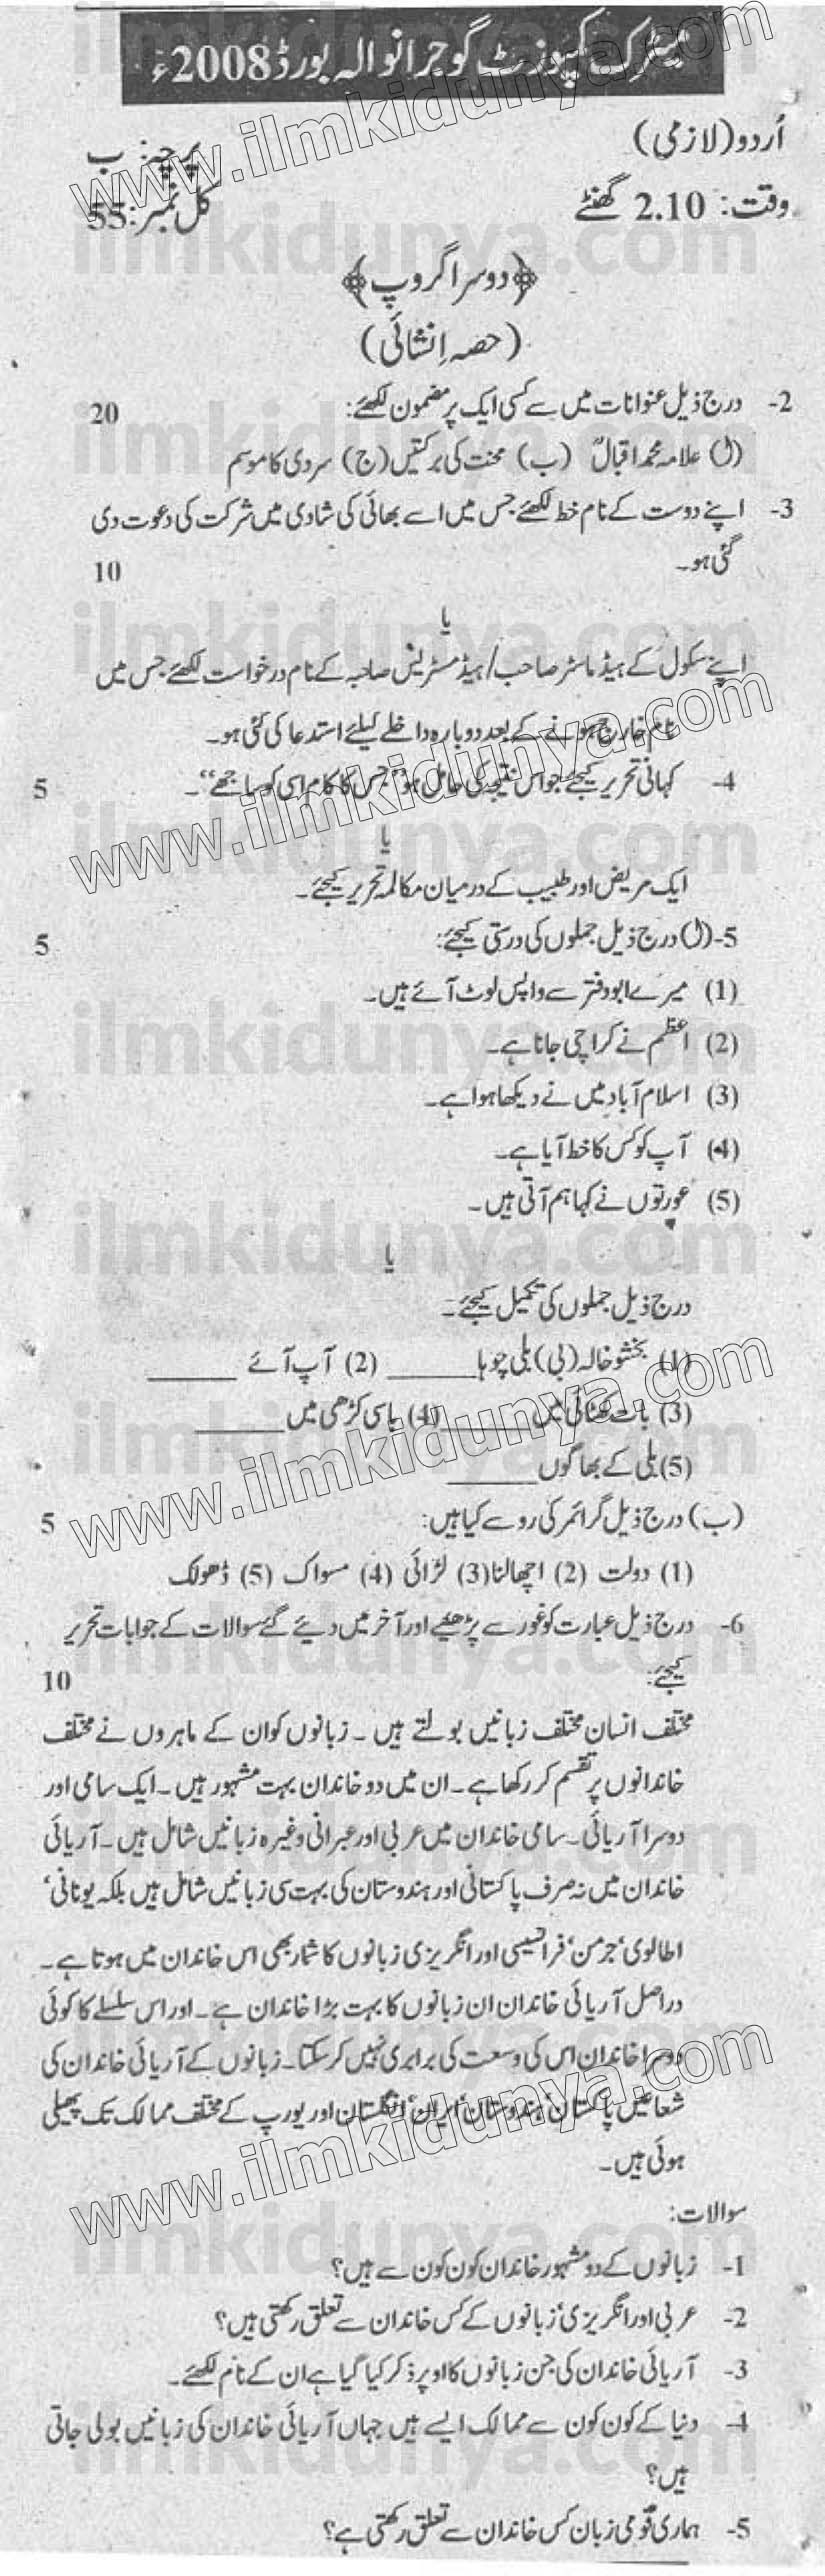 میٹرک کمپوزٹ گوجرانوالہ بورڈ 2008ء
اُردو (لازمی) پرچہ: ب
وقت: 2.10 گھنٹے کل نمبر: 55
﴿دوسرا گروپ﴾
(حصہ اِنشائی)
2- درج ذیل عنوانات میں سے کسی ایک پر مضمون لکھئے: 20
(ا) علامہ محمد اقبالؒ (ب) محنت کی برکتیں (ج) سردی کا موسم
3- اپنے دوست کے نام خط لکھئے جس میں اسے بھائی کی شادی میں شرکت کی دعوت دی
گئی ہو۔ 10
یا
اپنے سکول کے ہیڈ ماسٹر صاحب/ہیڈ مسٹریس صاحبہ کے نام درخواست لکھئے جس میں
نام خارج ہونے کے بعد دوبارہ داخلے کیلئے استدعا کی گئی ہو۔
4- کہانی تحریر کیجئے جو اس نتیجہ کی حامل ہو ”جس کا کام اسی کو ساجھے“۔ 5
یا
ایک مریض اور طبیب کے درمیان مکالمہ تحریر کیجئے۔
5-(ا) درج ذیل جملوں کی درستی کیجئے: 5
(1) میرے ابو دفتر سے واپس لوٹ آئے ہیں۔
(2) اعظم نے کراچی جانا ہے۔
(3) اسلام آباد میں نے دیکھا ہوا ہے۔
(4) آپ کو کس کا خط آیا ہے۔
(5) عورتوں نے کہا ہم آتی ہیں۔
یا
درج ذیل جملوں کی تکمیل کیجئے۔
(1) بخشو خالہ (بی) بلی چوہا ______ (2) آپ آئے ______
(3) بات کھٹائی میں ______ (4) باسی کڑھی میں ______
(5) بلی کے بھاگوں ______
(ب) درج ذیل گرائمر کی رو سے کیا ہیں: 5
(1) دولت (2) اچھالنا (3) لڑائی (4) مسواک (5) ڈھولک
6- درج ذیل عبارت کو غور سے پڑھئیے اور آخر میں دیئے گئے سوالات کے جوابات تحریر
کیجئے: 10
مختلف انسان مختلف زبانیں بولتے ہیں۔ زبانوں کو ان کے ماہروں نے مختلف
خاندانوں پر تقسم کر رکھا ہے۔ ان میں دو خاندان بہت مشہور ہیں۔ ایک سامی اور
دوسرا آریائی۔ سامی خاندان میں عربی اور عبرانی وغیرہ زبانیں شامل ہیں۔ آریائی
خاندان میں نہ صرف پاکستانی اور ہندوستان کی بہت سی زبانیں شامل ہیں بلکہ یونانی‘
اطالوی‘ جرمن‘ فرانسیسی اور انگریزی زبانوں کا شمار بھی اس خاندان میں ہوتا ہے۔
دراصل آریائی خاندان ان زبانوں کا بہت بڑا خاندان ہے۔ اور اس سلسلے کا کوئی
دوسرا خاندان اس کی وسعت کی برابری نہیں کر سکتا۔ زبانوں کے آریائی خاندان کی
شعاعیں پاکستان‘ ہندوستان‘ ایران‘ انگلستان اور یورپ کے مختلف ممالک تک پھیلی
ہوئی ہیں۔
سوالات:
1- زبانوں کے دو مشہور خاندان کون کون سے ہیں؟
2- عربی اور انگریزی‘ زبانوں کے کس خاندان سے تعلق رکھتی ہیں؟
3- آریائی خاندان کی جن زبانوں کا اوپر ذکر کیا گیا ہے ان کے نام لکھئے۔
4- دنیا کے کون کون سے ممالک ایسے ہیں جہاں آریائی خاندان کی زبانیں بولی جاتی
ہیں؟
5- ہماری قومی زبان کس خاندان سے تعلق رکھتی ہے؟
www.ilmkidunya.com
ilmkidunya.com